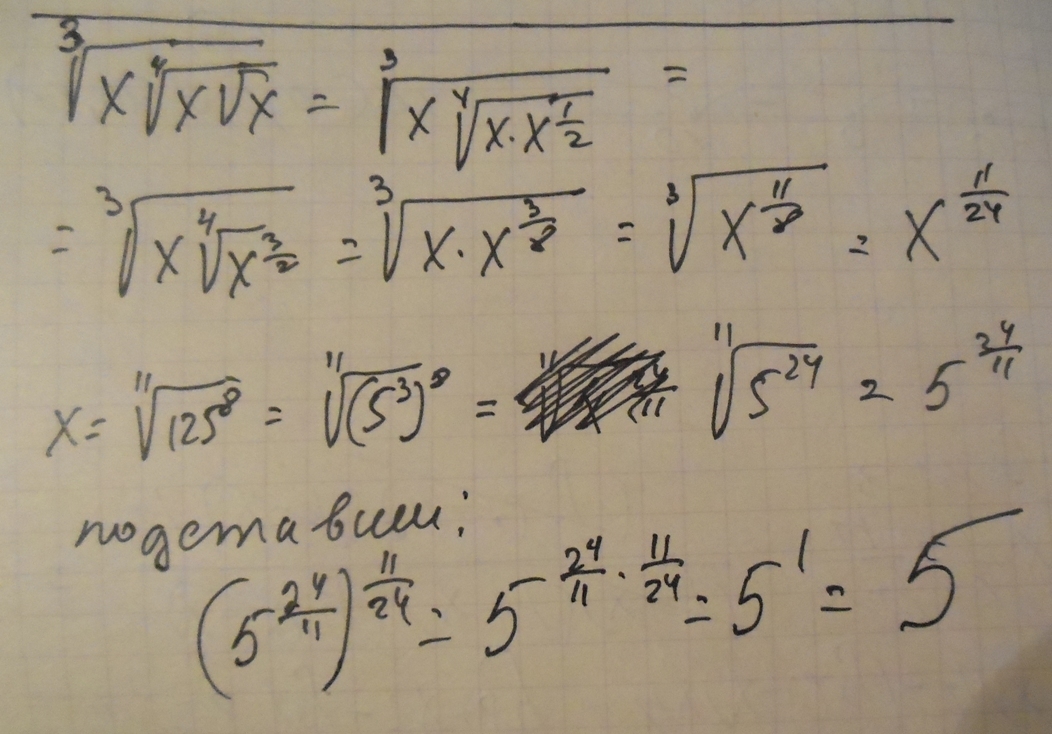 ∛(x ∜(x √x)) = ∛(x ∜(x · x^(1/2))) =
= ∛(x ∜(x^(3/2))) = ∛(x · x^(3/8)) = ∛(x^(11/8)) = x^(11/24)
x = ¹¹√(125⁸) = ¹¹√((5³)⁸) = ¹¹√(5²⁴) = 5^(24/11)
подставим:
(5^(24/11))^(11/24) = 5^(24/11 · 11/24) = 5¹ = 5